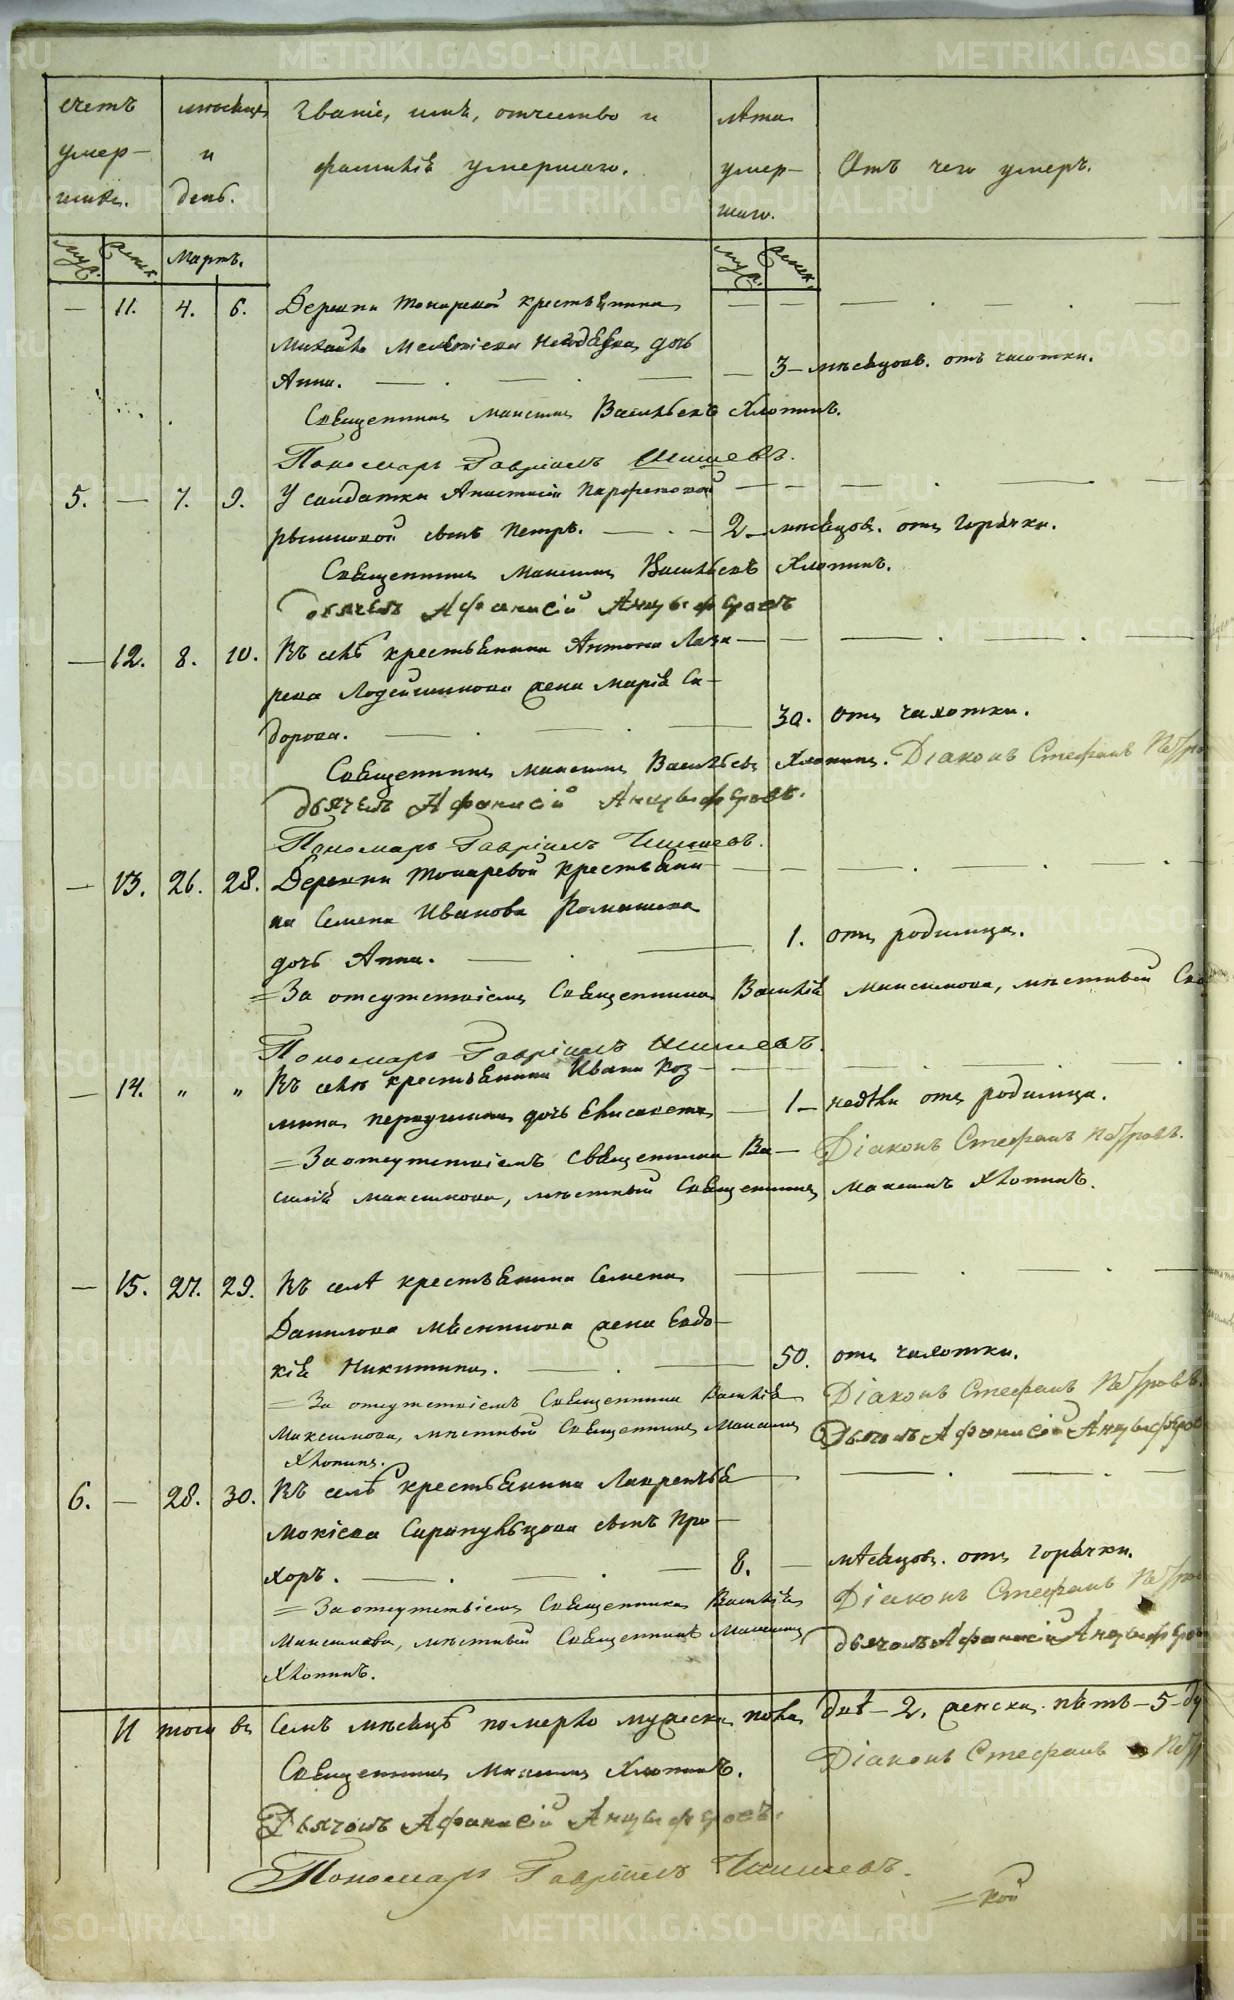 счетъ мѣсяцъ Званіе, имя, отчество и лѣта
умер- и фамилія умершаго. умер- Отъ чего умеръ.
шихъ. день. шаго.
муж. женск. Мартъ. муж. женск.
— 11. 4. 6. Деревни Токаревой крестьянина
Михайла дочь
Анна. — 3 — мѣсяцовъ. отъ чахотки.
Священникъ Максимъ Васильевъ Хлопинъ.
Пономарь Гавріилъ Шишевъ.
5. — 7. 9. У солдатки Анастасіи Парфеновой
сынъ Петръ. — 2 — мѣсяцов. отъ горячки.
Священникъ Максимъ Васильевъ Хлопинъ.
Дьячекъ Афанасій Анцыферовъ
— 12. 8. 10. Въ селѣ крестьянина Антона Лаза-
рева Лодейщикова жена Марія Си-
дорова. — 30. отъ чахотки.
Священникъ Максимъ Васильевъ Хлопинъ. Діаконъ Стефанъ Петро
Дьячекъ Афанасій Анцыферовъ.
Пономарь Гавріилъ Шишевъ.
— 13. 26. 28. Деревни Токаревой крестьяни-
на Семена Иванова
дочь Анна. — 1. отъ родимца.
= За отсутствіемъ Священника Василія Максимова, мѣстный Свя
Пономарь Гавріилъ Шишевъ.
— 14. „ „ Въ селѣ крестьянина Ивана Коз-
мина дочь Елисавета — 1 — недѣли отъ родимца.
= За отсутствіемъ Священника Ва- Діаконъ Стефанъ Петровъ.
силія Максимова, мѣстный Священникъ Максимъ Хлопинъ.
— 15. 27. 29. Въ селѣ крестьянина Семена
Данилова Мясникова жена Евдо-
кія Никитина. — 50. отъ чахотки.
= За отсутствіемъ Священника Василія Діаконъ Стефанъ Петровъ.
Максимова, мѣстный Священникъ Максимъ Дьячекъ Афанасій Анцыферов
Хлопинъ.
6. — 28. 30. Въ селѣ крестьянина Лаврентья
Мокіева Сарапульцова сынъ Про-
хоръ. — 8. — мѣсяцовъ. отъ горячки.
= За отсутствіемъ Священника Василія Діаконъ Стефанъ Петро
Максимова, мѣстный Священникъ Максимъ Дьячекъ Афанасій Анцыферо
Хлопинъ.
И того въ семъ мѣсяцѣ померло мужеска пола двѣ — 2. женска пять — 5 — ду
Священникъ Максимъ Хлопинъ. Діаконъ Стефанъ Петр
Дьячекъ Афанасій Анцыферовъ.
Пономарь Гавріилъ Шишевъ.
= кой
METRIKI.GASO-URAL.RU